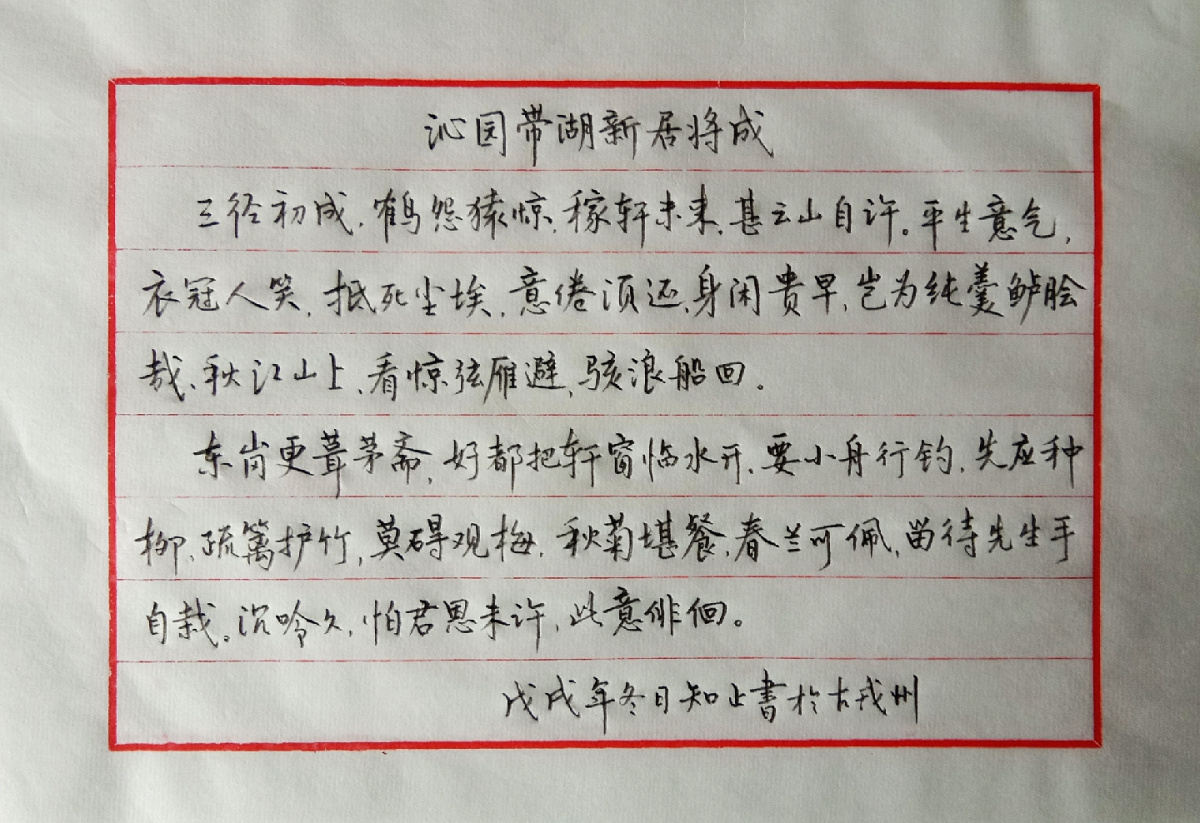 沁园带湖新居将成
三径初成、鹤怨猿惊、稼轩未来、甚云山自许。平生意气，
衣冠人笑、抵死尘埃、意倦须还、身闲贵早、岂为纯羹鲈脍
哉、秋江山上、看惊弦雁避、骇浪船回。
东岗更葺茅斋、好都把轩窗临水开、要小舟行钓、先应种
柳、疏篱护竹，莫碍观梅、秋菊堪餐、春兰可佩、留待先生手
自栽。沉吟久，怕君恩未许，此意徘徊。
戊戌年冬日知止书於古戎州